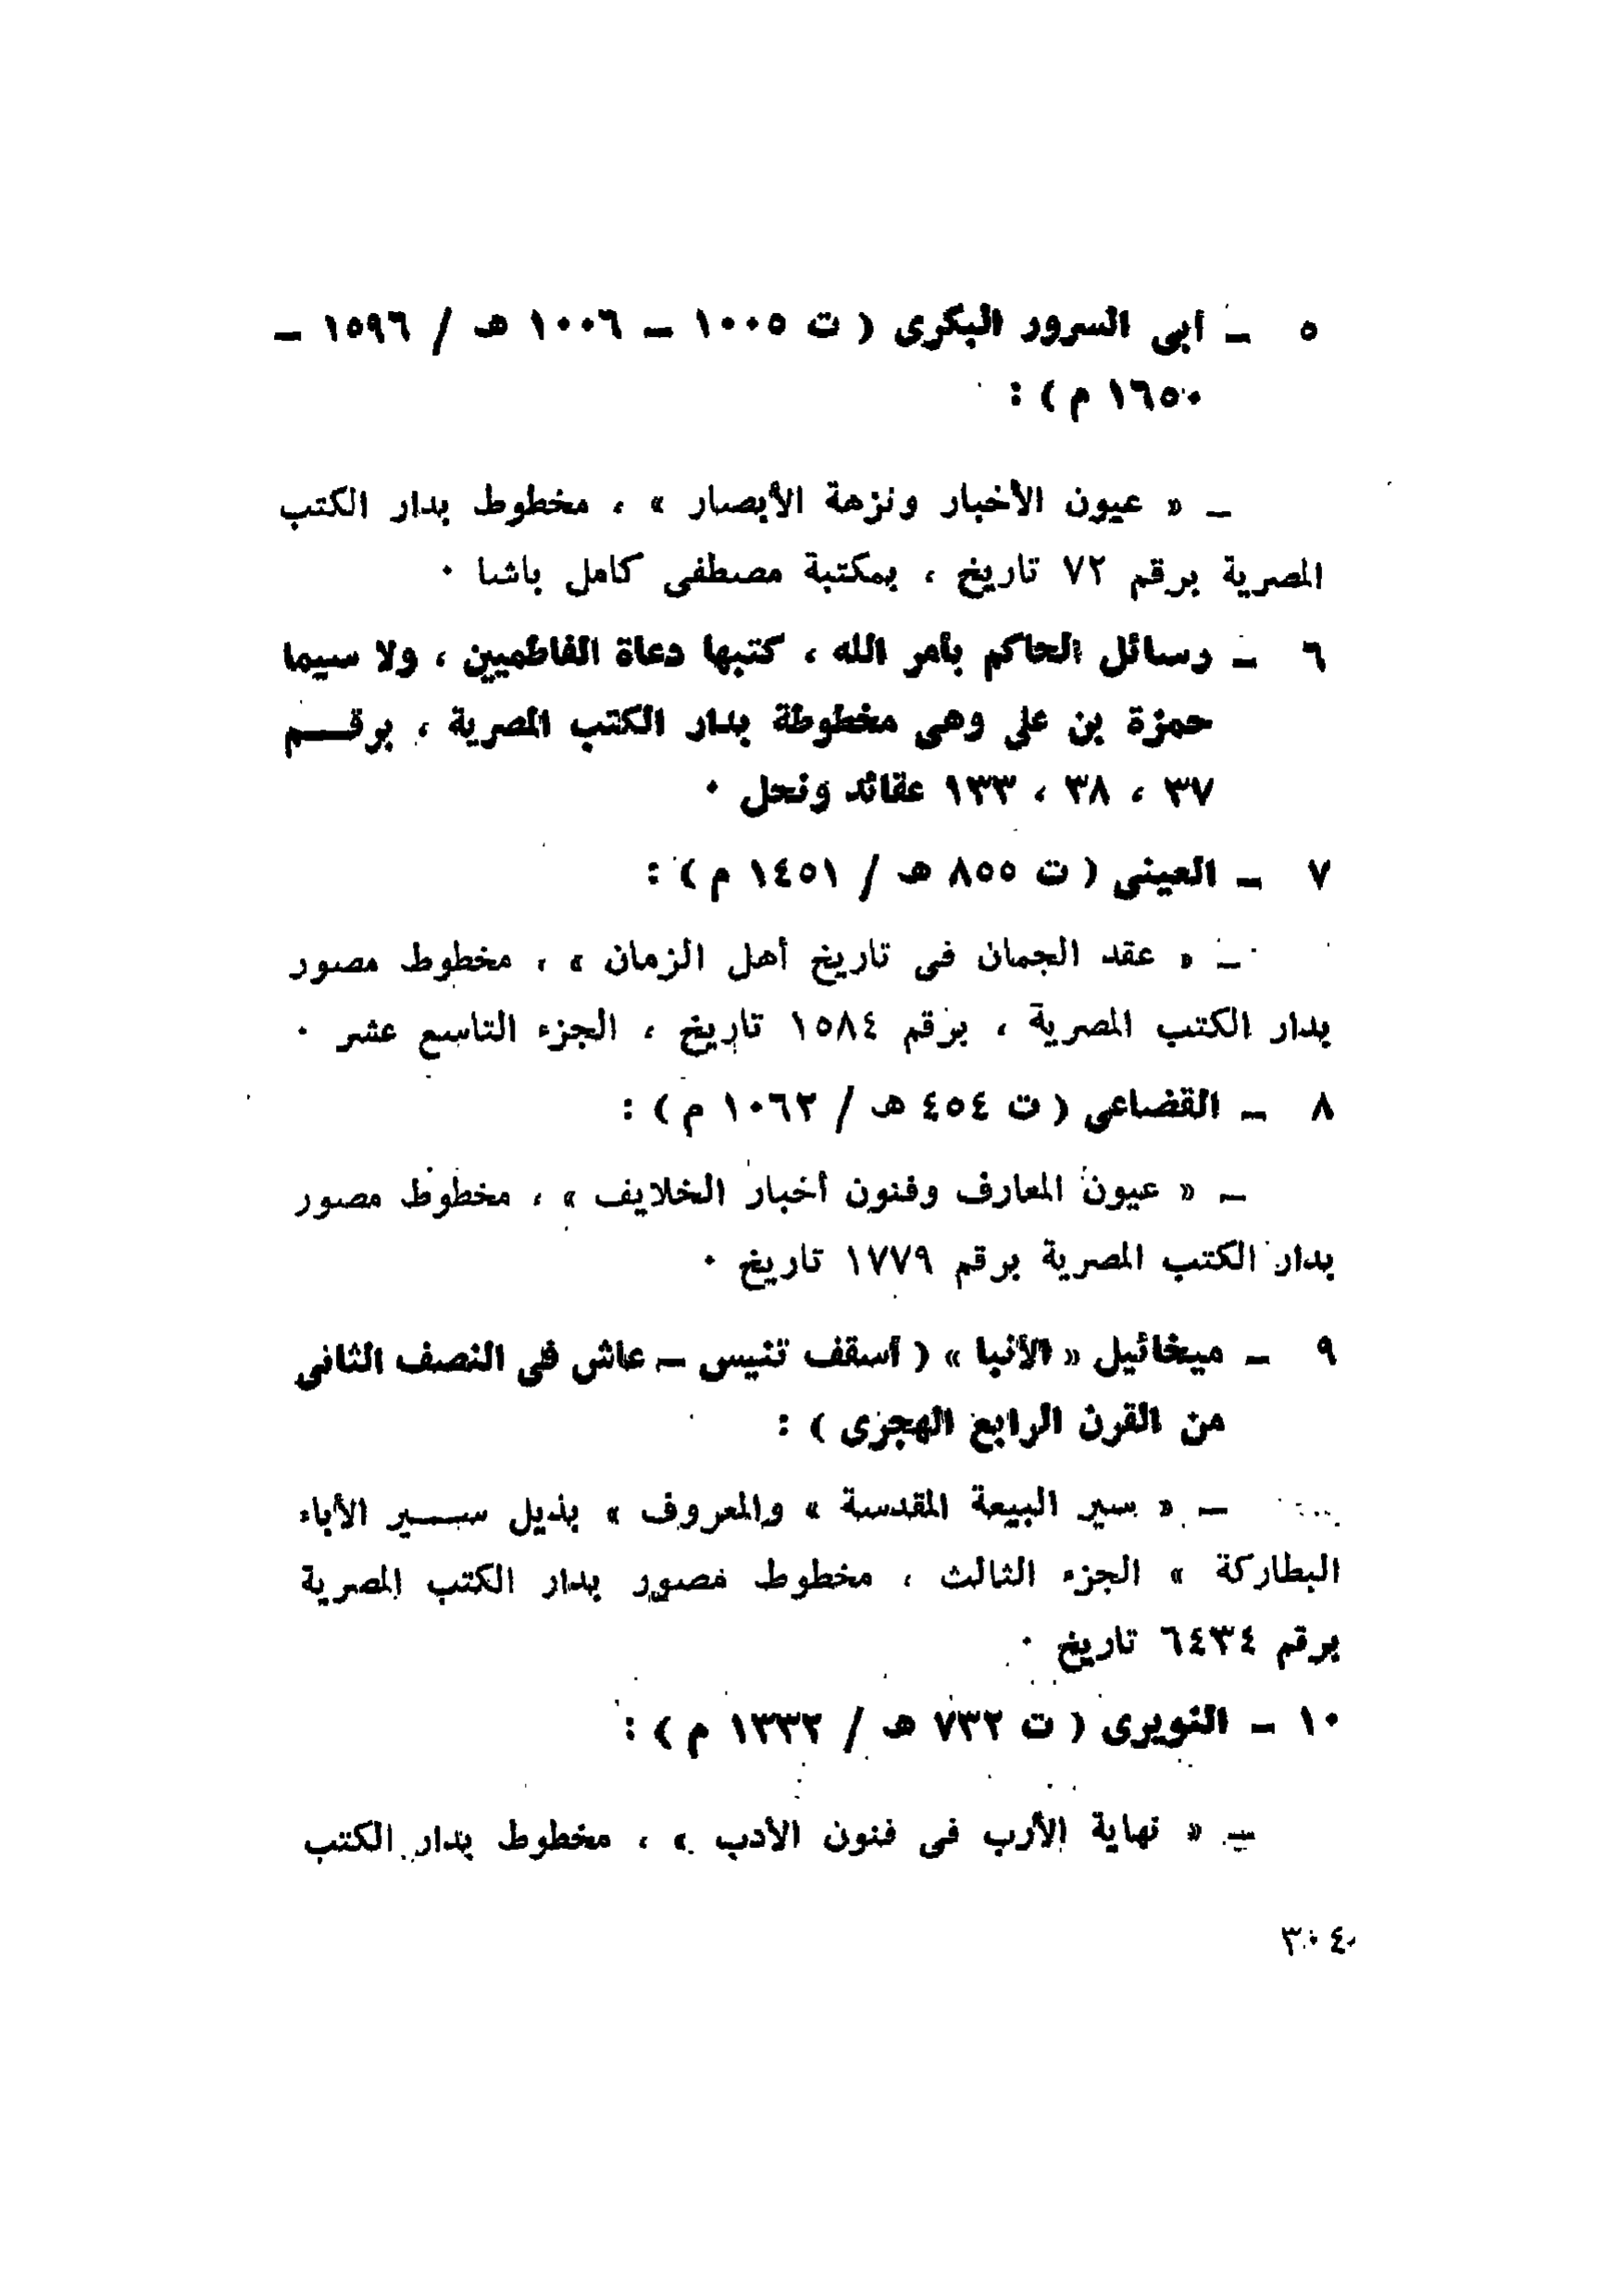 ٥ ــ أبى السرور البكرى ( ت ١٠٠٥ ــ ١٠٠٦ هـ / ١٥٩٦ ــ
١٦٥٠ م ) :
ــ « عيون الأخبار ونزهة الأبصار » ، مخطوط بدار الكتب
المصرية برقم ٧٢ تاريخ ، بمكتبة مصطفى كامل باشا ٠
٦ ــ رسائل الحاكم بأمر الله ، كتبها دعاة الفاطميين ، ولا سيما
حمزة بن على وهى مخطوطة بدار الكتب المصرية ، برقـــم
٣٧ ، ٣٨ ، ١٣٣ عقائد ونحل ٠
٧ ــ العينى ( ت ٨٥٥ هـ / ١٤٥١ م ) :
ــ « عقد الجمان فى تاريخ أهل الزمان » ، مخطوط مصور
بدار الكتب المصرية ، برقم ١٥٨٤ تاريخ ، الجزء التاسع عشر ٠
٨ ــ القضاعى ( ت ٤٥٤ هـ / ١٠٦٢ م ) :
ــ « عيون المعارف وفنون أخبار الخلايف » ، مخطوط مصور
بدار الكتب المصرية برقم ١٧٧٩ تاريخ ٠
٩ ــ ميخائيل « الأنبا » ( أسقف تنيس ــ عاش فى النصف الثانى
من القرن الرابع الهجرى ) :
ــ « سير البيعة المقدسة » والمعروف » بذيل ســـير الأباء
البطاركة » الجزء الثالث ، مخطوط مصور بدار الكتب المصرية
برقم ٦٤٣٤ تاريخ ٠
١٠ ــ النويرى ( ت ٧٣٢ هـ / ١٣٣٢ م ) :
ــ « نهاية الأرب فى فنون الأدب » ، مخطوط بدار الكتب
٣٠٤